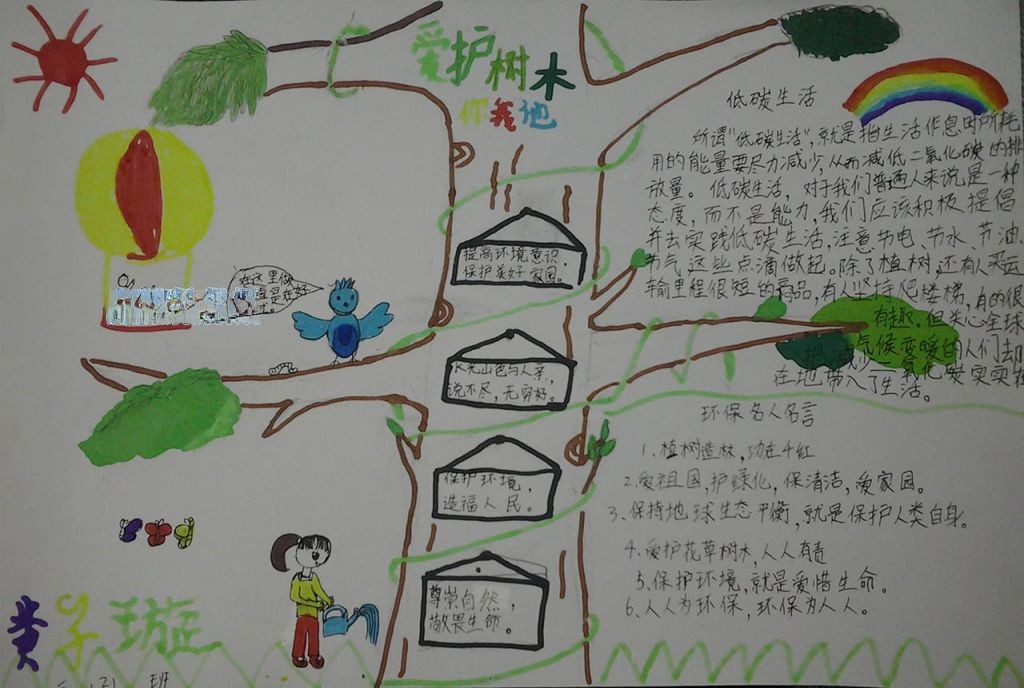 爱护树木
你我他
低碳生活
所谓"低碳生活",就是指生活作息时所耗
用的能量要尽力减少,从而减低二氧化碳的排
放量。低碳生活,对于我们普通人来说是一种
态度,而不是能力,我们应该积极提倡
并去实践低碳生活,注意节电、节水、节油、
节气这些点滴做起。除了植树,还有人买运
输里程很短的商品,有人坚持爬楼梯,有的很
有趣,但关心全球
气候变暖的人们却
二氧化碳实实在
在地带入了生活。
提高环境意识
保护美好家园。
在这里做
水光山色与人亲,
说不尽,无穷好。
保护环境,
造福人民。
尊崇自然,
敬畏生命。
环保名人名言
1.植树造林,功在千红
2.爱祖国,护绿化,保清洁,爱家园。
3、保持地球生态平衡,就是保护人类自身。
4.爱护花草树木,人人有责
5.保护环境,就是爱惜生命。
6.人人为环保,环保为人人。
黄子璇
班